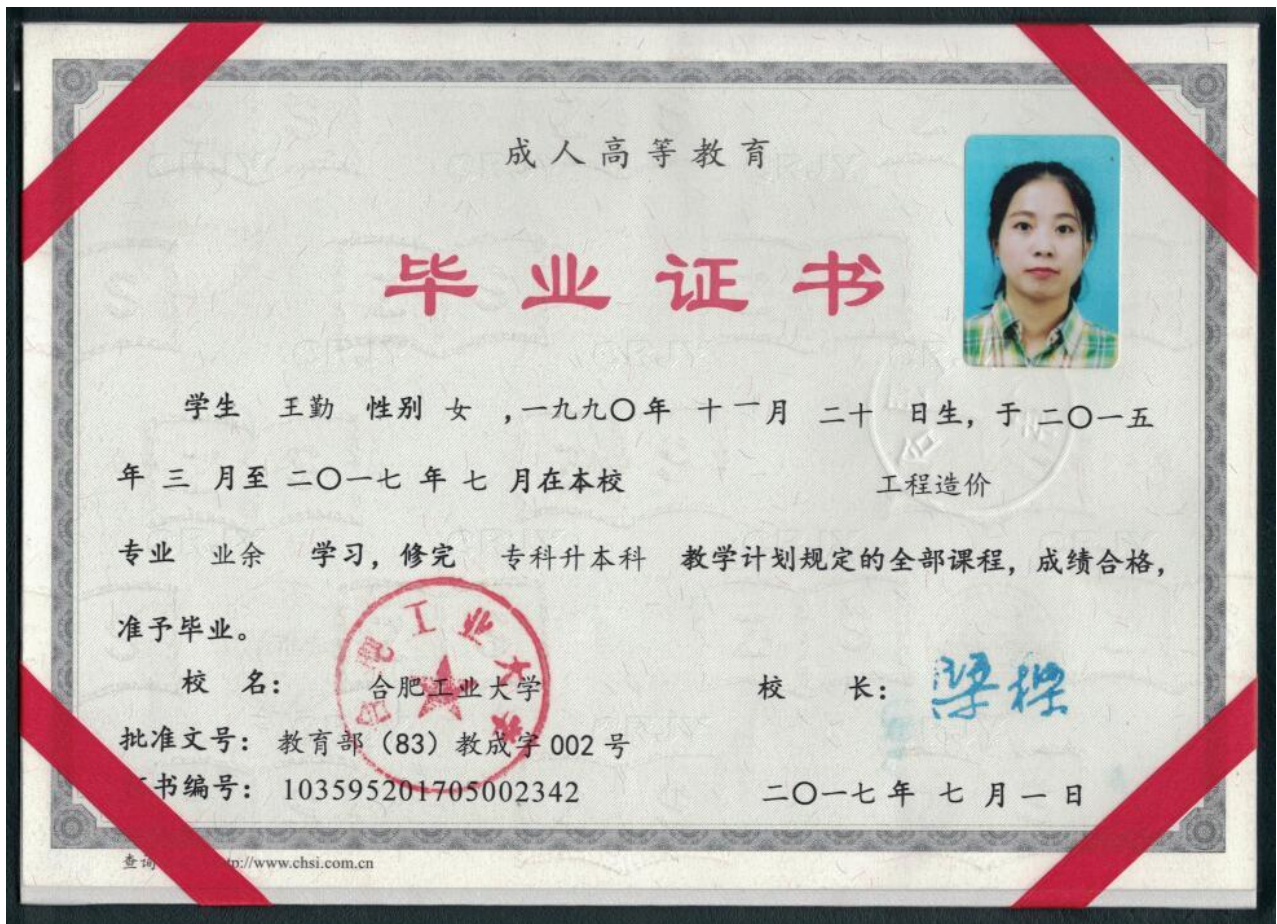 成人高等教育
毕业证书
学生 王勤 性别 女 ,一九九〇年 十一月 二十 日生,于 二〇一五
年 三 月至 二〇一七 年 七 月在本校 工程造价
专业 业余 学习,修完 专科升本科 教学计划规定的全部课程,成绩合格,
准予毕业。
校 名: 合肥工业大学
合肥工业大学
校 长: 梁樑
批准文号: 教育部(83)教成字 002 号
书编号: 103595201705002342
二〇一七 年 七 月 一 日
查询 tp://www.chsi.com.cn